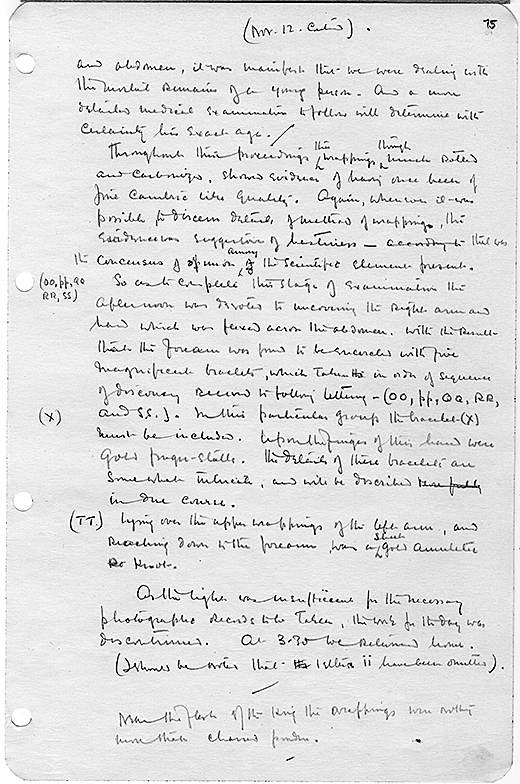 (Nov. 12. Contd).
75
and abdomen, it was manifest that we were dealing with
the mortal remains of a young person. And a more
detailed medical examination to follow will determine with
certainty his exact age. /
Throughout these proceedings the wrappings, though much rotted
and carbonized, showed evidence of having once been of
fine cambric like quality. Again, whenever it was
possible to discern details of method of wrapping, the
evidence was suggestive of hastiness — according to
the concensus of opinion among the scientific element present.
(OO, PP, QQ
RR, SS)
So as to complete this stage of examination the
afternoon was devoted to uncovering the right arm and
hand which was flexed across the abdomen. With the result
that the forearm was found to be encircled with five
magnificent bracelets, which taken in order of sequence
of discovery record to following lettering – (OO, PP, QQ, RR,
(X)
and SS.). In this particular group the bracelet (X)
must be included. Upon the fingers of this hand were
gold finger-stalls. The details of these bracelets are
somewhat intricate, and will be described
in due course.
(TT.)
Lying over the upper wrappings of the left arm, and
reaching down to the forearm, was a sheet gold amuletic
knot.
As the light was insufficient for the necessary
photographic records to be taken, the work for the day was
discontinued. At 3.30 we returned home.
(It should be noted that letters ii have been omitted).
Near the flesh of the King the wrappings were nothing
more than charred powder.